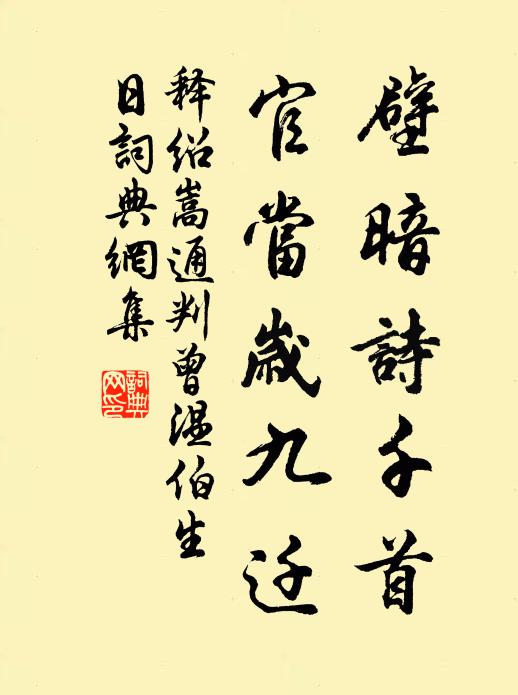 壁暗詩千首
官當歲九迁
释绍嵩通判曾温伯生
日詞典網集
詞典
网印